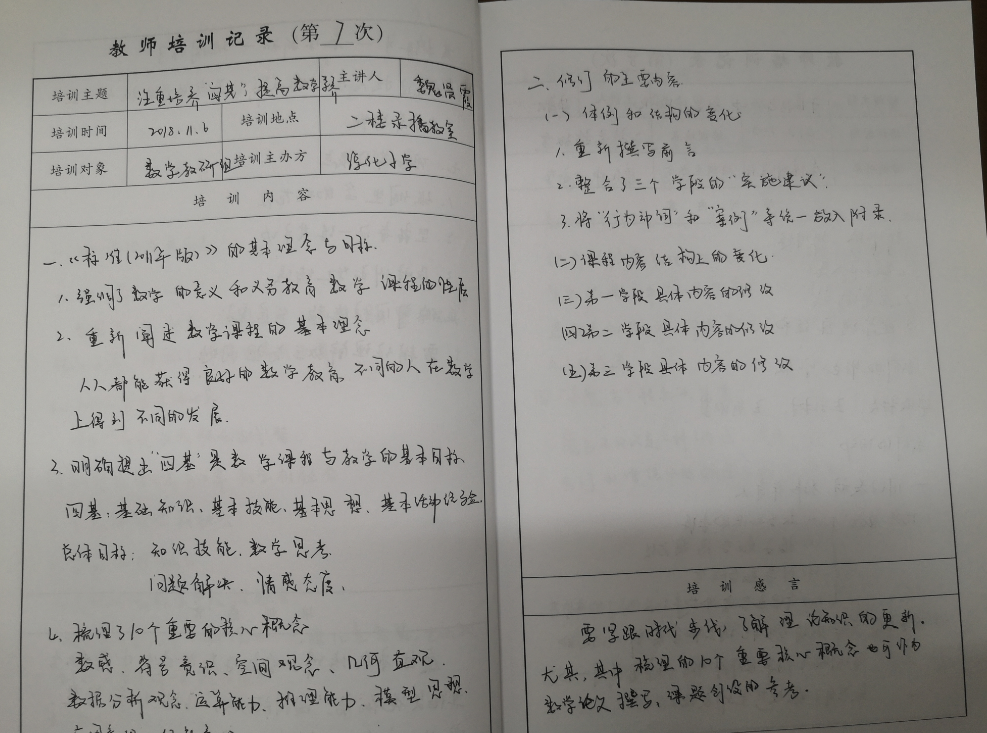 教师培训记录（第7次）
培训主题 注重培养“四基”，提高数学素养 主讲人
培训时间 2018.11.6 培训地点 二楼录播教室
培训对象 数学教研组 培训主办方 淳化小学
培训内容
一.《标准(2011年版)》的基本理念与目标.
1.强调了数学的意义和义务教育数学课程的性质
2.重新阐述数学课程的基本理念
人人都能获得良好的数学教育,不同的人在数学
上得到不同的发展.
3.明确提出“四基”是数学课程与教学的基本目标
四基:基础知识、基本技能、基本思想、基本活动经验.
总体目标:知识技能、数学思考、
问题解决、情感态度、
4.梳理了10个重要的核心概念
数感、符号意识、空间观念、几何直观、
数据分析观念、运算能力、推理能力、模型思想、
二.修订的主要内容
(一)体例和结构的变化
1.重新撰写前言
2.整合了三个学段的“实施建议”.
3.将“行为动词”和“案例”等统一放入附录.
(二)课程内容结构上的变化
(三)第一学段具体内容的修改
(四)第二学段具体内容的修改
(五)第三学段具体内容的修改
培训感言
要紧跟时代步伐,了解理论知识的更新.
尤其,其中梳理的10个重要核心概念也可作为
数学论文撰写,课题创设的参考.